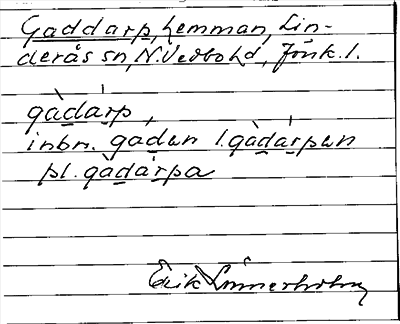 Gaddarp, hemman, Lin-
derås sn, N. Vedbohd, Jönk. l.
gàdárp,
inbn. gaden l. gàdárpen
pl. gàdárpa
Erik Linnerholm